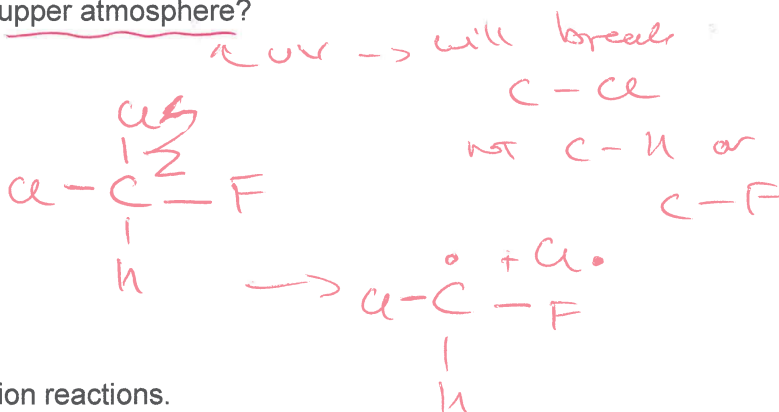 upper atmosphere?
UV -> will break
C - Cl
not C - H or
C - F
Cl
Cl - C - F
H
-> Cl - C - F + Cl •
H
ion reactions.